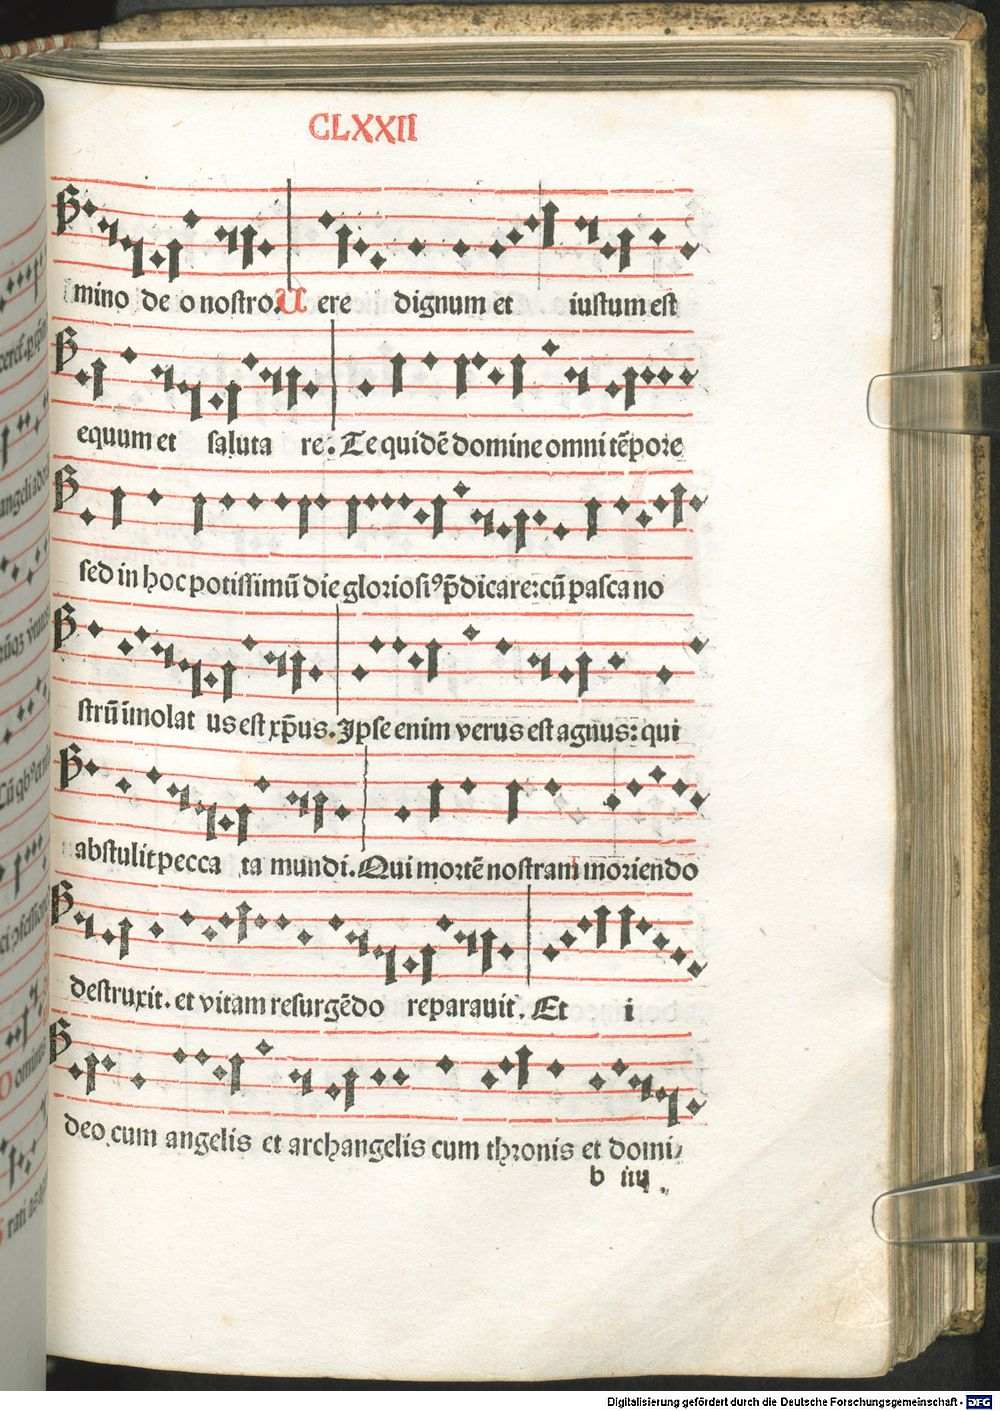 CLXXII
mino de o nostro. Uere dignum et iustum est
equum et saluta re. Te quidē domine omni tēpore
sed in hoc potissimū die gloriosiꝰ p̄dicare: cū pasca no
strū imolat us est xp̄us. Ipse enim verus est agnus: qui
abstulit pecca ta mundi. Qui mortē nostram moriendo
destruxit. et vitam resurgēdo reparauit. Et i
deo cum angelis et archangelis cum thronis et domi⸗
b iiii
Digitalisierung gefördert durch die Deutsche Forschungsgemeinschaft - DFG